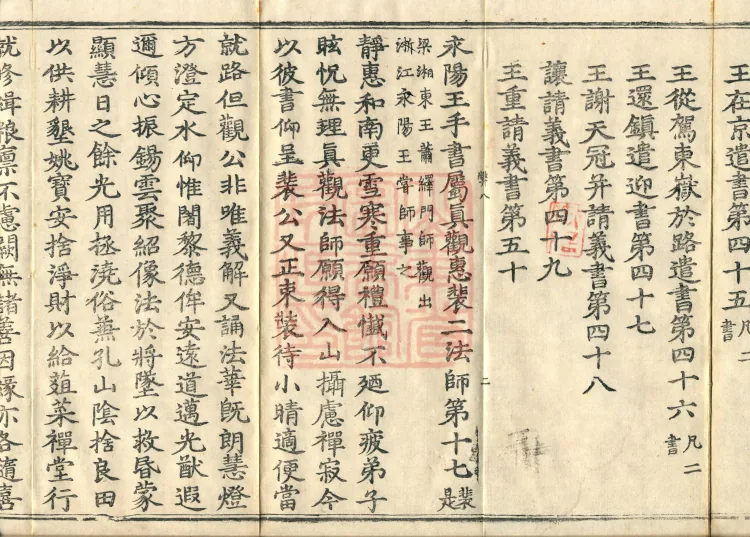 王在京遣書第四十五凡二書
王從駕東嶽於路遣書第四十六凡二書
王還鎮遣迎書第四十七
王謝天冠并請義書第四十八
讓請義書第四十九
王重請義書第五十
永陽王手書屬真觀惠裴二法師第十七裴是
梁湘東王蕭繹門師觀出
浙江永陽王嘗師事之
靜惠和南更雪寒重願禮懺不廼仰疲弟子
眩怳無理真觀法師願得入山攝慮禪寂今
以彼書仰呈裴公又正束裝待小晴適便當
就路但觀公非唯義解又誦法華既朗慧燈
方澄定水仰惟闍黎德侔安遠道邁光猷遐
邇傾心振錫雲聚紹像法於將墜以救昏蒙
顯慧日之餘光用拯澆俗兼孔山陰捨良田
以供耕墾姚寶安捨淨財以給葅菜禪堂行
就修緝粮稟不慮闕無諸善因緣亦各隨喜